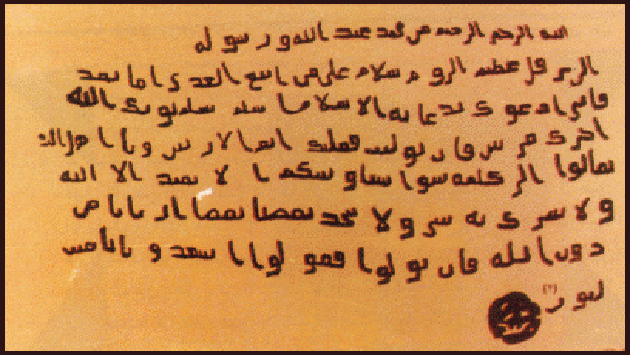 الله الرحمن الرحيم من محمد عبد الله ورسوله
الى هرقل عظيم الروم سلام على من اتبع الهدى اما بعد
فانى ادعوك بدعاية الاسلام اسلم تسلم يوتك الله
اجرك مرتين فان توليت فعليك اثم الاريسين ويا اهل الكتاب
تعالوا الى كلمة سوا بيننا وبينكم ا لا نعبد الا الله
ولا نشرك به شيا ولا يتخذ بعضنا بعضا اربابا من
دون الله فان تولوا فقولوا اشهدوا بانا مس
لمون